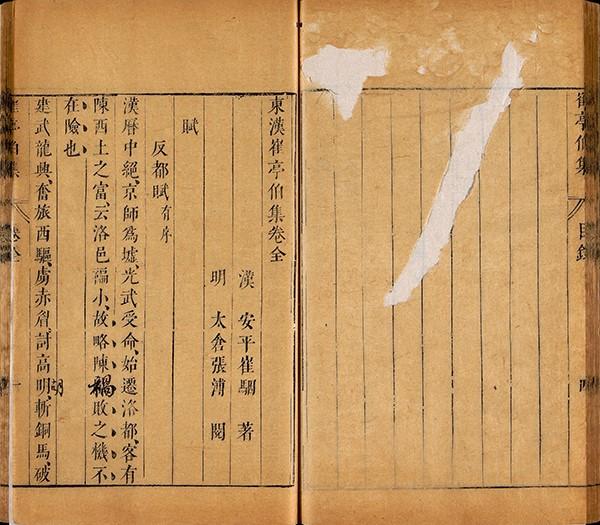 崔亭伯集 目錄 四
東漢崔亭伯集卷全
漢 安平崔駰 著
明 太倉張溥 閱
賦
反都賦有序
漢曆中絕、京師為墟、光武受命、始遷洛都、客有
陳西土之富、云洛邑褊小、故略陳禍敗之機、不
在險也、
建武龍興、奮旅西驅、虜赤眉、討高明、斬銅馬、破
崔亭伯集 卷全 一